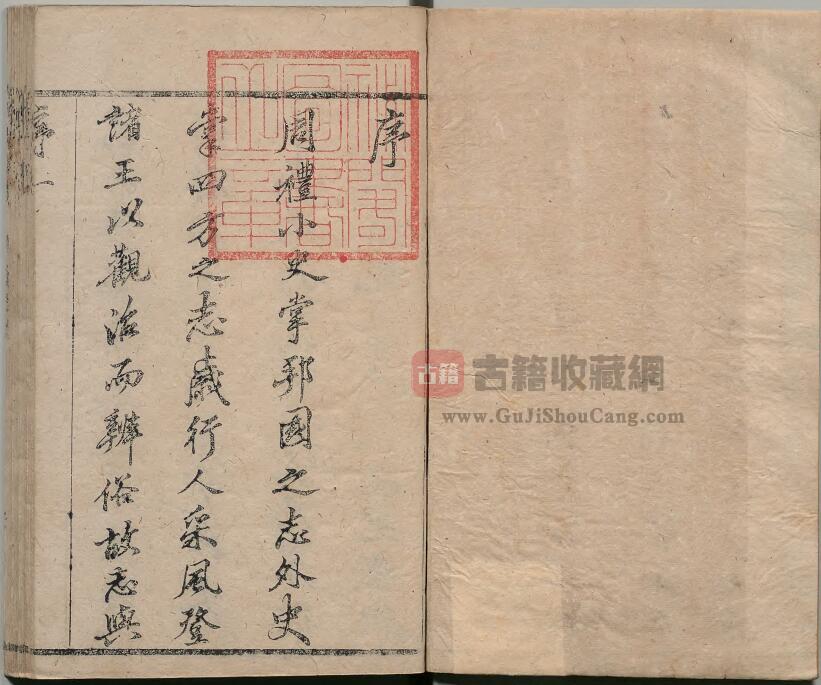 序
周禮小史掌邦國之志外史
掌四方之志歲行人采風登
諸王以觀治而辨俗故志與
序一
古籍
古籍收藏網
www.GuJiShouCang.com